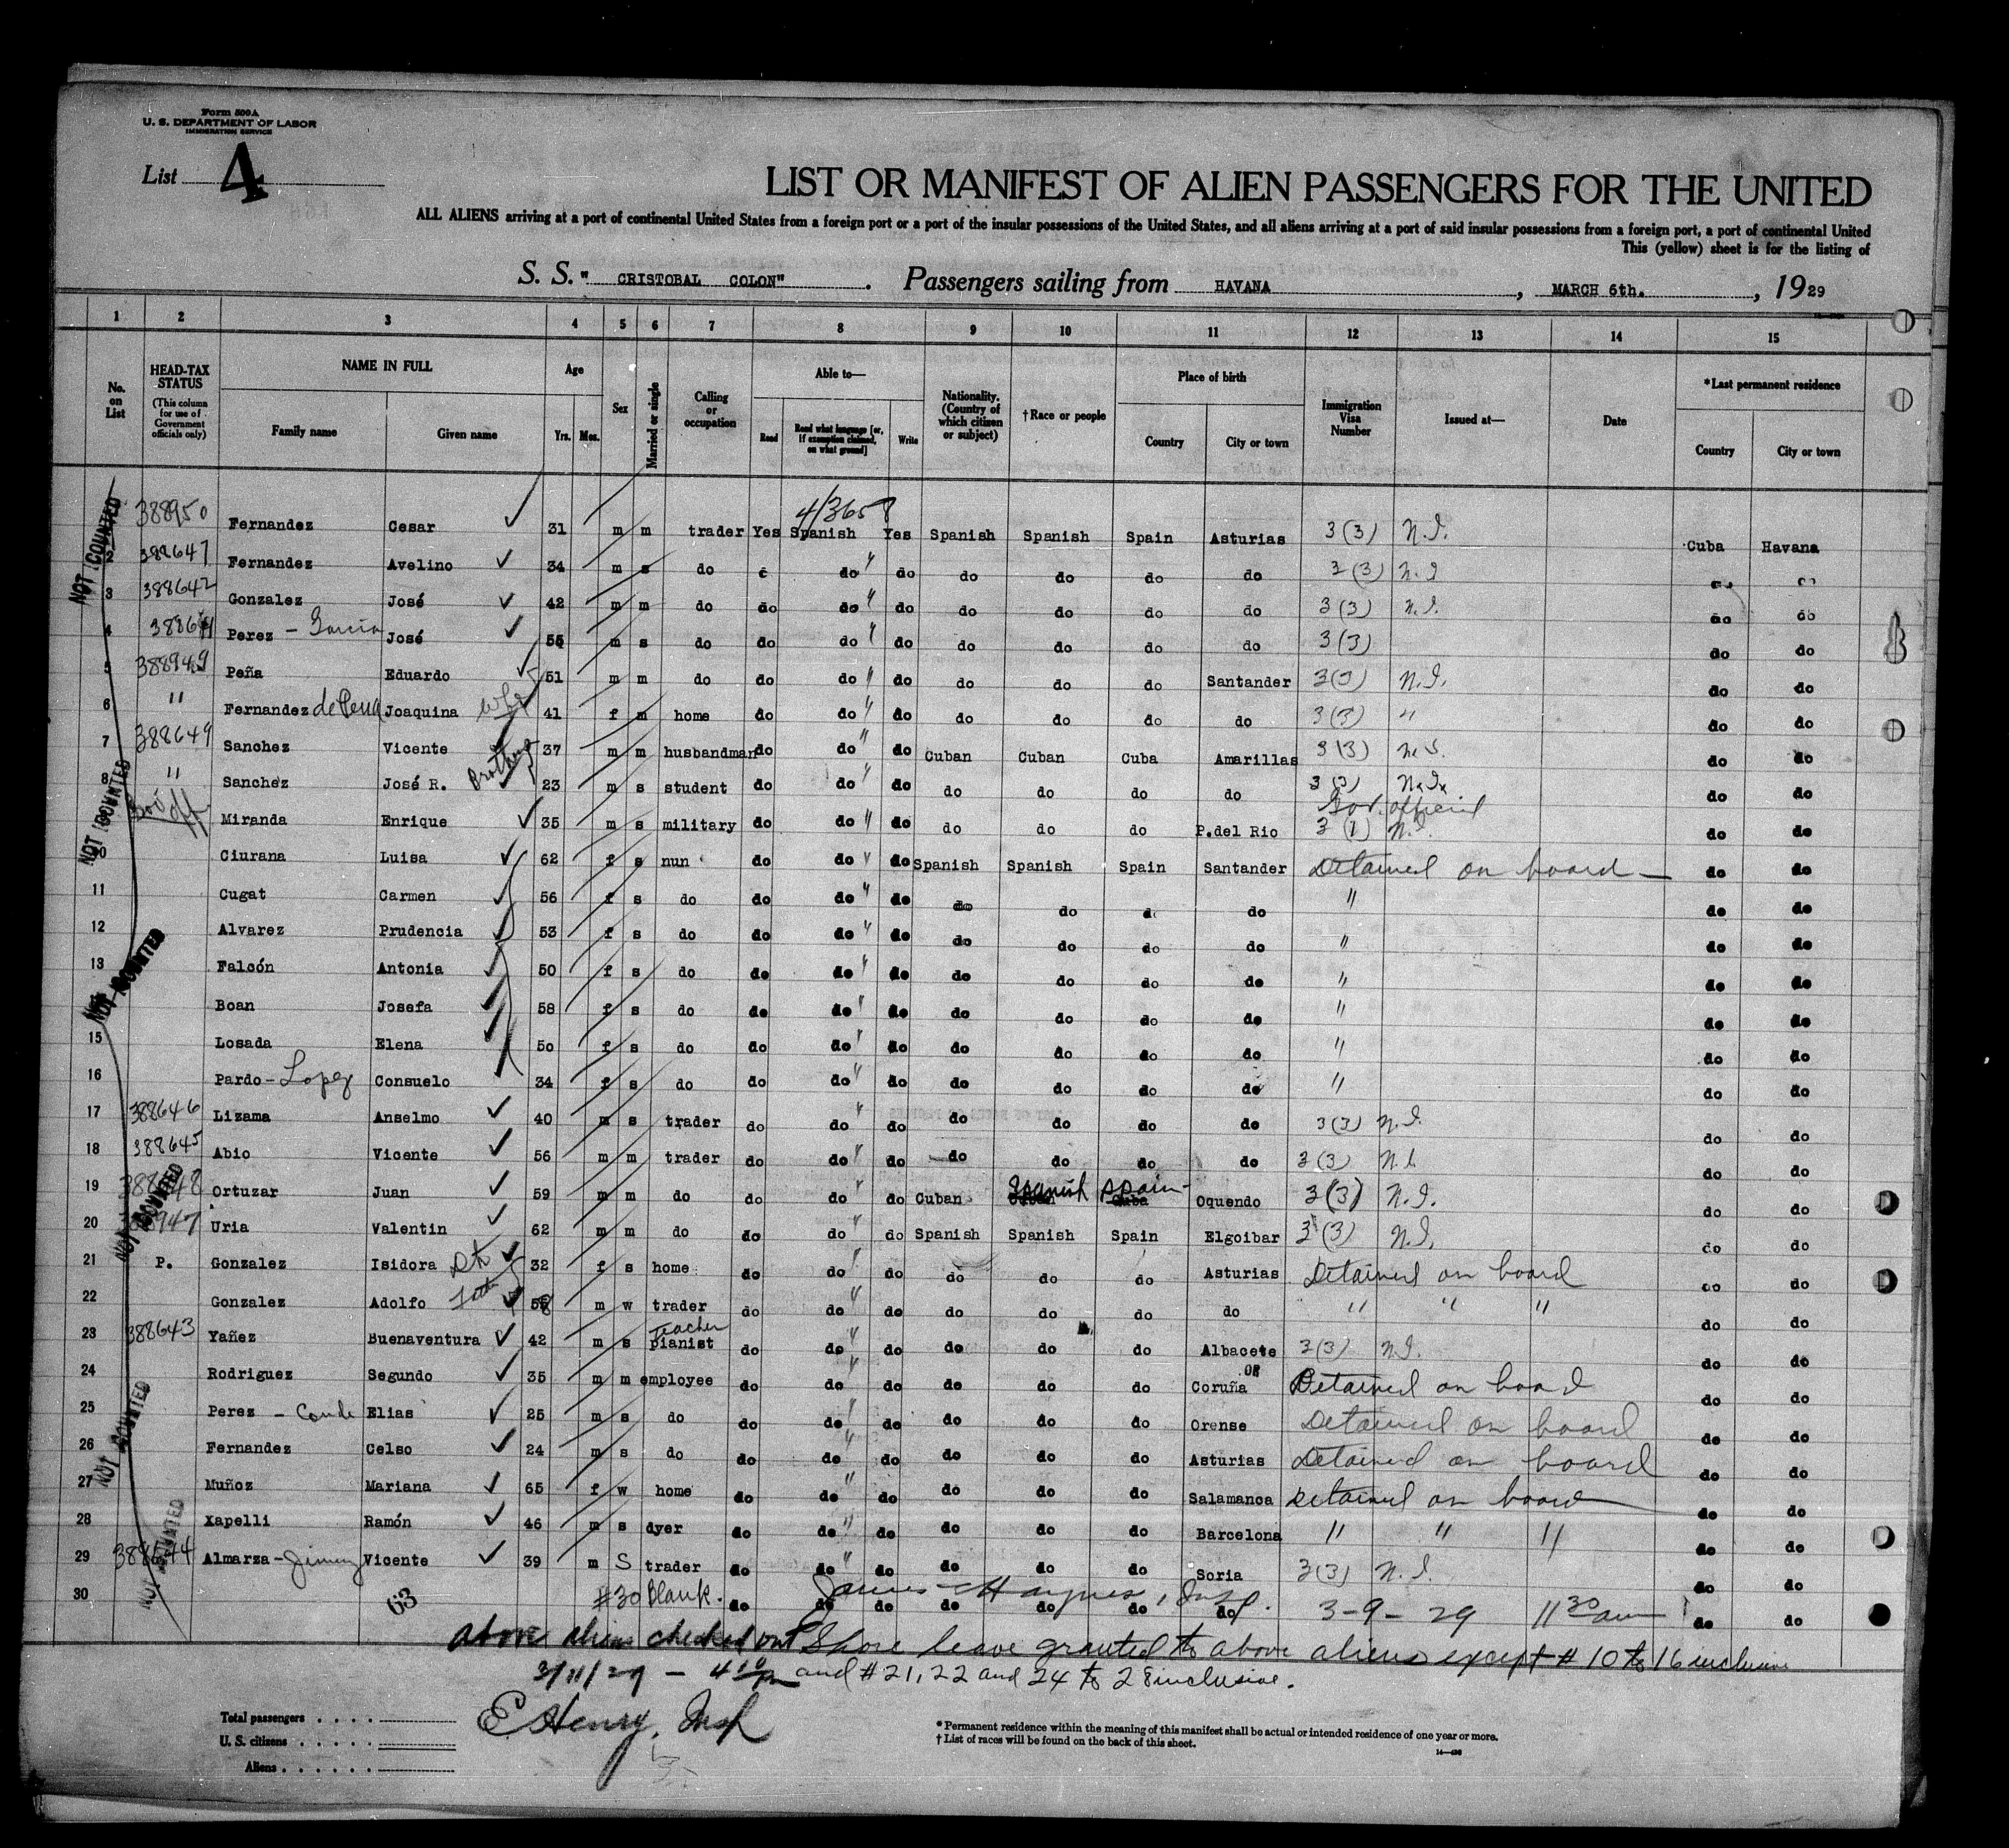 Form 500A
U. S. DEPARTMENT OF LABOR
IMMIGRATION SERVICE
List 4
LIST OR MANIFEST OF ALIEN PASSENGERS FOR THE UNITED
ALL ALIENS arriving at a port of continental United States from a foreign port or a port of the insular possessions of the United States, and all aliens arriving at a port of said insular possessions from a foreign port, a port of continental United
This (yellow) sheet is for the listing of
S. S. " CRISTOBAL COLON" . Passengers sailing from HAVANA , MARCH 6th. , 1929
1 2 3 4 5 6 7 8 9 10 11 12 13 14 15
No. on List HEAD-TAX STATUS (This column for use of Government officials only) NAME IN FULL Family name Given name Age Yrs. Mos. Sex Married or single Calling or occupation Able to— Read Read what language [or, if exemption claimed, on what ground] Write Nationality. (Country of which citizen or subject) †Race or people Place of birth Country City or town Immigration Visa Number Issued at— Date *Last permanent residence Country City or town
4/3658
388950 Fernandez Cesar 31 m m trader Yes Spanish Yes Spanish Spanish Spain Asturias 3(3) N.I. Cuba Havana
2 388647 Fernandez Avelino 34 m s do do do do do do do 3(3) N.I
3 388642 Gonzalez José 42 m m do do do do do do do do 3(3) N.I. do do
4 Perez - Garcia José 55 m s do do do do do do do do 3(3) do do
5 388949 Peña Eduardo 51 m m do do do do do do do Santander 3(3) N.I. do do
6 " Fernandez de Pena Joaquina wife 41 f m home do do do do do do do 3(3) " do do
7 388649 Sanchez Vicente 37 m m husbandman do do do Cuban Cuban Cuba Amarillas 3(3) N.I. do do
8 " Sanchez José R. Brothers 23 m s student do do do do do do do 3(3) N.I. do do
Gov. official
Miranda Enrique 35 m s military do do do do do do P.del Rio 3(1) N.I. do do
10 Ciurana Luisa 62 f s nun do do do Spanish Spanish Spain Santander Detained on board do do
11 Cugat Carmen 56 f s do do do do do do do do " do do
12 Alvarez Prudencia 53 f s do do do do do do do do " do do
13 Falcón Antonia 50 f s do do do do do do do do " do do
Boan Josefa 58 f s do do do do do do do do " do do
15 Losada Elena 50 f s do do do do do do do do " do do
16 Pardo - Lopez Consuelo 34 f s do do do do do do do do " do do
17 388646 Lizama Anselmo 40 m s trader do do do do do do do 3(3) N.I. do do
18 388645 Abio Vicente 56 m m trader do do do do do do do 3(3) N.I. do do
19 Ortuzar Juan 59 m m do do do do Cuban Spanish Spain Oquendo 3(3) N.I. do do
20 Uria Valentin 62 m m do do do do Spanish Spanish Spain Elgoibar 3(3) N.I. do do
21 P. Gonzalez Isidora 32 f s home do do do do do do Asturias Detained on board do do
22 Gonzalez Adolfo m w trader do do do do do do do " " " do do
teacher
23 388643 Yañez Buenaventura 42 m s pianist do do do do do do Albacete 3(3) N.I. do do
24 Rodriguez Segundo 35 m m employee do do do do do do Coruña Detained on board do do
25 Perez - Conde Elias 25 m s do do do do do do do Orense Detained on board do do
26 Fernandez Celso 24 m s do do do do do do do Asturias Detained on board do do
27 Muñoz Mariana 65 f w home do do do do do do Salamanca Detained on board do do
28 Xapelli Ramón 46 m s dyer do do do do do do Barcelona " " " do do
29 Almarza - Vicente 39 m S trader do do do do do do Soria 3(3) N.I. do do
30 63 #30 Blank. do do do do do do do James Haynes, Insp. 3-9-29 11 30 am do do
NOT COUNTED
NOT COUNTED
NOT COUNTED
NOT COUNTED
NOT COUNTED
NOT COUNTED
above aliens checked out Shore leave granted to above aliens except # 10 to 16 inclusive
3/11/29 - 4 10 pm and #21, 22 and 24 to 28 inclusive.
E Henry, Insp
Total passengers
U. S. citizens
Aliens
* Permanent residence within the meaning of this manifest shall be actual or intended residence of one year or more.
† List of races will be found on the back of this sheet.